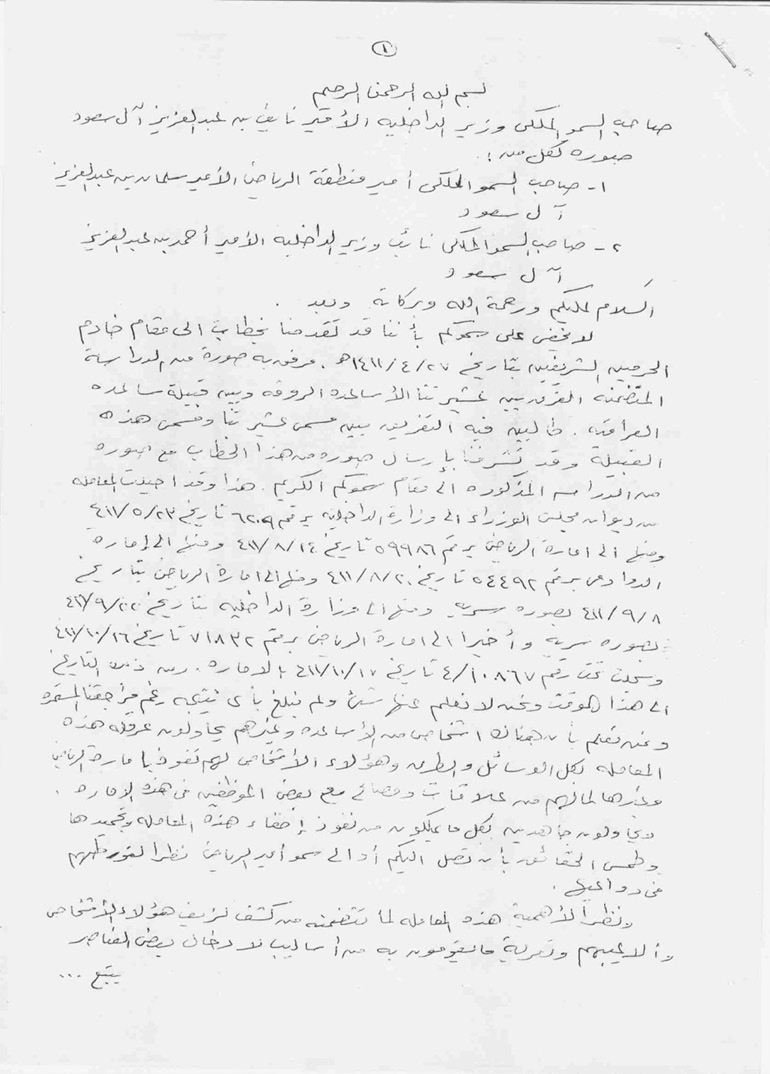 ١
بسم الله الرحمن الرحيم
صاحب السمو الملكي وزير الداخليه الأمير نايف بن عبدالعزيز آل سعود
صوره لكل من :
١- صاحب السمو الملكي أمير منطقة الرياض الأمير سلمان بن عبدالعزيز
آل سعود
٢- صاحب السمو الملكي نائب وزير الداخليه الأمير أحمد بن عبدالعزيز
آل سعود
السلام عليكم ورحمة الله وبركاته وبعد .
لا يخفى على سموكم بأننا قد تقدمنا بخطاب الى مقام خادم
الحرمين الشريفين بتاريخ ١٤١١/٤/٢٧هـ . مرفق به صورة من الدراسة
المتضمنه الفرق بين عشيرتنا الأساعده الروقه وبين قبيلة ساعده
طالبين فيه التفريق بين مسمى عشيرتنا ومسمى هذه
القبيلة وقد تشرفنا بإرسال صوره من هذا الخطاب مع صوره
من الدراسه المذكوره الى مقام سموكم الكريم . هذا وقد احيلت المعامله
من ديوان مجلس الوزراء الى وزارة الداخليه برقم ٦٢٠٩ تاريخ ٤١١/٥/٢٣
ومنها الى امارة الرياض برقم ٥٩٩٨٦ تاريخ ٤١١/٨/١٤ ومنها الى إمارة
الدوادمي برقم ٥٤٤٩٢ تاريخ ٤١١/٨/٢٠ ومنها الى امارة الرياض بتاريخ
٤١١/٩/٨ بصوره سريه ومنها الى وزارة الداخليه بتاريخ ٤١١/٩/٢٢
بصوره سرية وأخيرا الى امارة الرياض برقم ٧١٨٣٢ تاريخ ٤١١/١٠/١٦
وسجلت تحت رقم ٤/١٠٨٦٧ تاريخ ٤١١/١٠/١٧ بالاماره . ومن ذلك التاريخ
الى هذا الوقت ونحن لا نعلم عنها شئ ولم نبلغ بأي نتيجه رغم مراجعتنا المستمره
ونحن نعلم بأن هناك اشخاص من الأساعده وغيرهم يحاولون عرقلة هذه
المعامله بكل الوسائل والطرق وهؤلاء الأشخاص لهم نفوذ بإمارة الرياض
وغيرها لما لهم من علاقات ومصالح مع بعض الموظفين في هذه الاماره .
ويحاولون جاهدين بكل ما يملكون من نفوذ إخفاء هذه المعامله وتجميدها
وطمس الحقائق بأن تصل اليكم أو الى سمو أمير الرياض نظرا لتورطهم
في دواعيها .
ونظراً لأهمية هذه المعامله لما تتضمنه من كشف تزييف هؤلاء الأشخاص
وألاعيبهم وتعرية ما يقومون به من أساليب لادخال بعض العناصر
يتبع ...